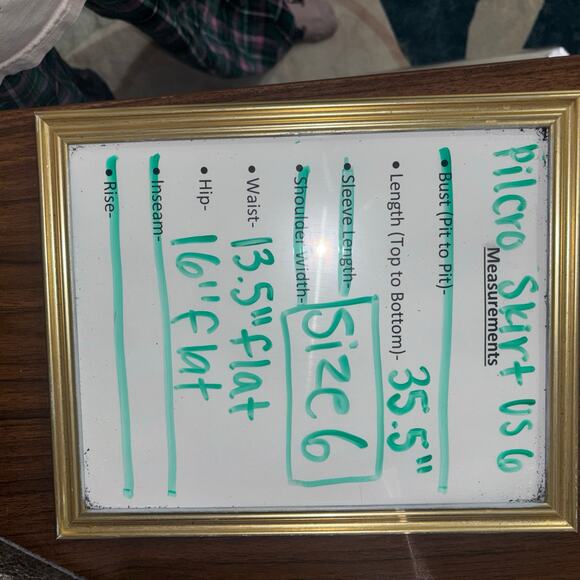 Pilcro Skirt US 6
Measurements
• Bust (Pit to Pit)-
• Length (Top to Bottom)- 35.5"
• Sleeve Length-
• Shoulder Width- Size 6
• Waist- 13.5" flat
• Hip- 16" flat
• Inseam-
• Rise-